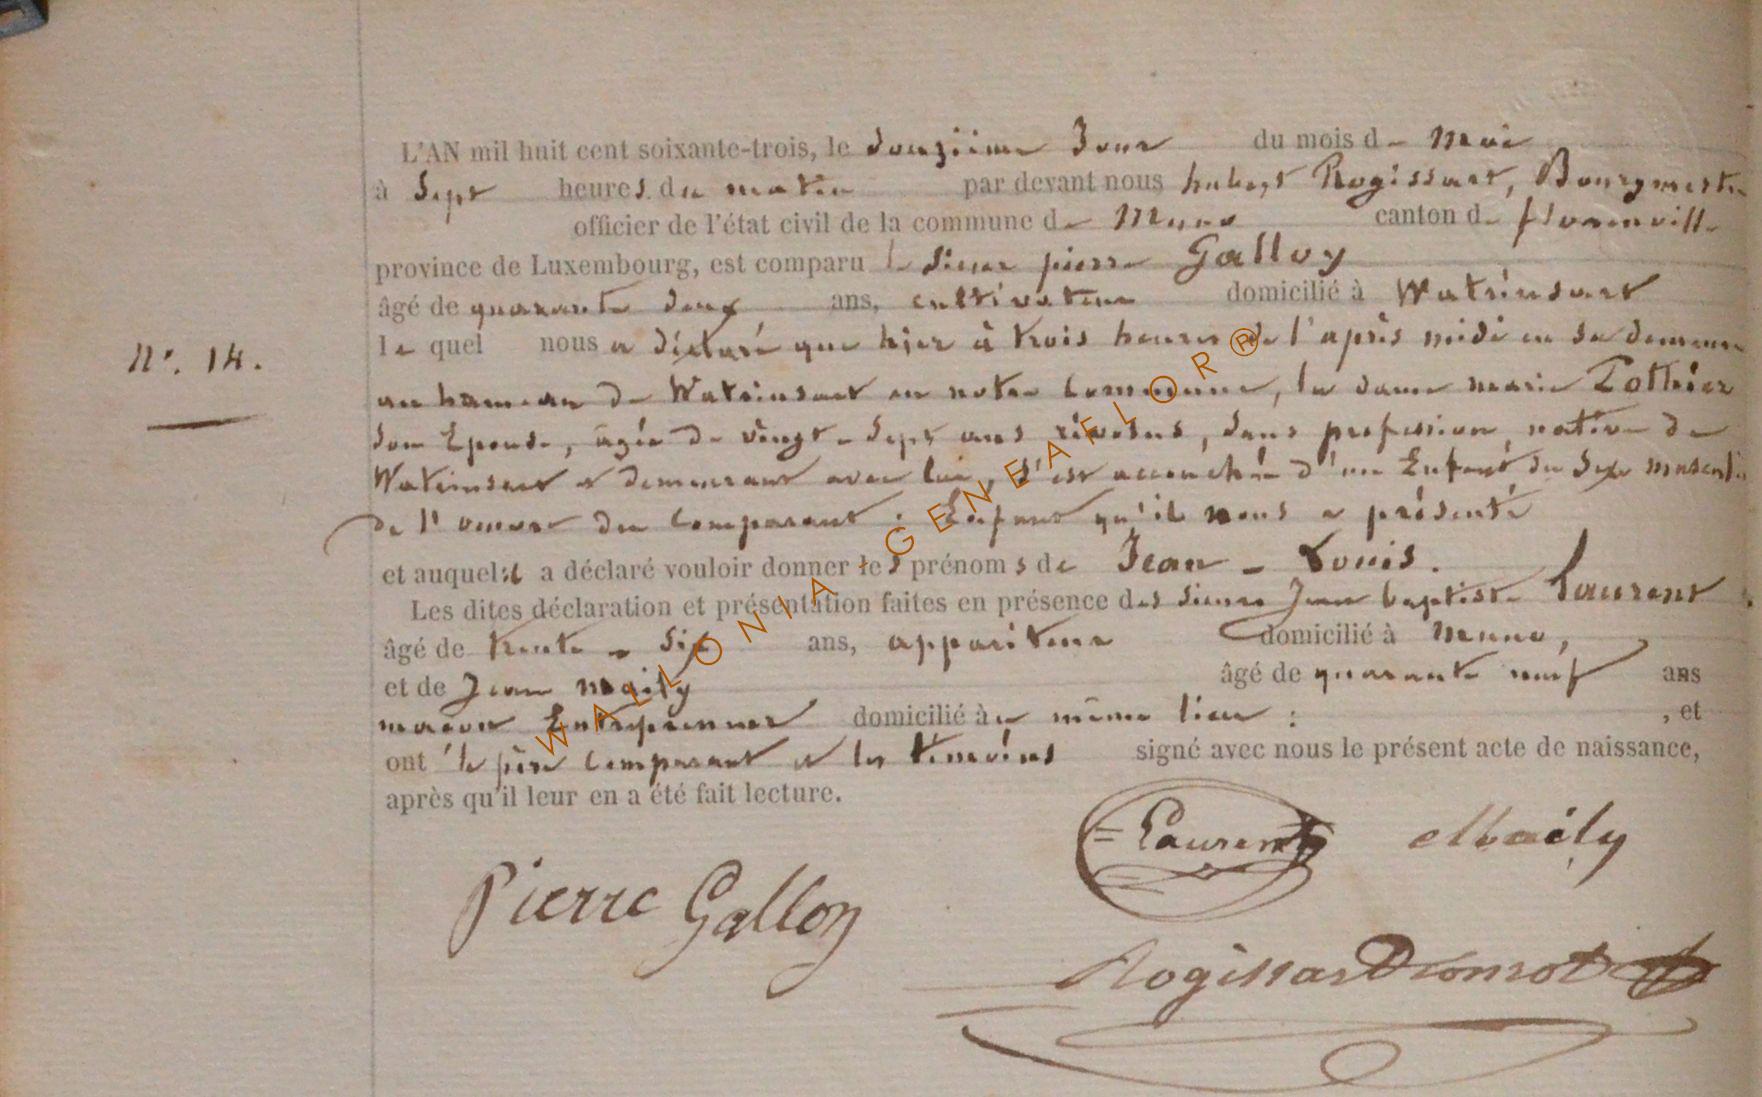 L'AN mil huit cent soixante-trois, le douzième Jour du mois de Mai
à Sept heures du matin par devant nous hubert Rogissart, Bourgmestre
officier de l'état civil de la commune de Muno canton de florenville
province de Luxembourg, est comparu le Sieur pierre Galloy
âgé de quarante deux ans, cultivateur domicilié à Watrinsart
le quel nous a déclaré que hier à trois heures de l'après midi en sa demeure
N°. 14.
au hameau de Watrinsart en notre commune, la dame marie Pothier
son Epouse, âgée de vingt-sept ans révolus, sans profession, native de
Watrinsart et demeurant avec lui, s'est accouchée d'un Enfant du Sexe masculin
de l'oeuvre du Comparant : Enfant qu'il nous a présenté
et auquel il a déclaré vouloir donner les prénoms de Jean - Louis.
Les dites déclaration et présentation faites en présence des sieurs Jean baptiste Laurent
âgé de trente - Six ans, appariteur domicilié à Muno,
et de Jean Maily âgé de quarante neuf ans
maçon Entrepreneur domicilié au même lieu : , et
ont le père Comparant et les témoins signé avec nous le présent acte de naissance,
après qu'il leur en a été fait lecture.
Laurent Maily
Pierre Galloy
Rogissart Dromot
WALLONIA GENEAFLOR®